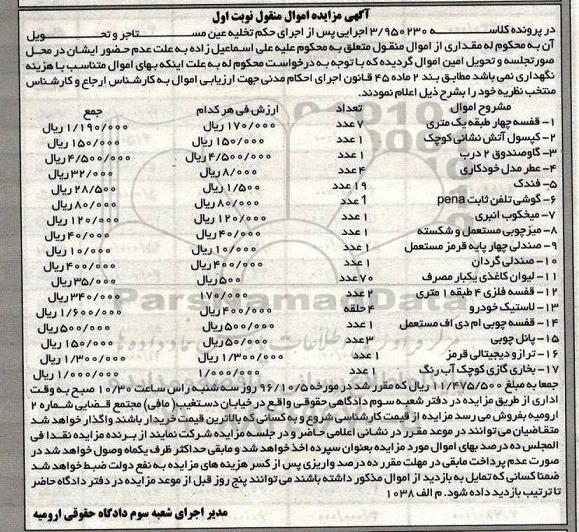 آگهی مزایده اموال منقول نوبت اول
در پرونده کلاسه ۳/۹۵۰۲۳۰ اجرایی پس از اجرای حکم تخلیه عین مستاجر و تحویل
آن به محکوم له مقداری از اموال منقول متعلق به محکوم علیه علی اسماعیل زاده به علت عدم حضور ایشان در محل
صورتجلسه و تحویل امین اموال گردیده که با توجه به درخواست محکوم له به علت اینکه بهای اموال متناسب با هزینه
نگهداری نمی باشد مطابق بند ۲ ماده ۴۵ قانون اجرای احکام مدنی جهت ارزیابی اموال به کارشناس ارجاع و کارشناس
منتخب نظریه خود را بشرح ذیل اعلام نمودند.
مشروح اموال تعداد ارزش فی هر کدام جمع
۱- قفسه چهار طبقه یک متری ۷ عدد ۱۷۰/۰۰۰ ریال ۱/۱۹۰/۰۰۰ ریال
۲- کپسول آتش نشانی کوچک ۱ عدد ۱۵۰/۰۰۰ ریال ۱۵۰/۰۰۰ ریال
۳- گاوصندوق ۲ درب ۱ عدد ۴/۵۰۰/۰۰۰ ریال ۴/۵۰۰/۰۰۰ ریال
۴- عطر مدل خودکاری ۴ عدد ۸/۰۰۰ ریال ۳۲/۰۰۰ ریال
۵- فندک ۱۹ عدد ۱/۵۰۰ ریال ۲۸/۵۰۰ ریال
۶- گوشی تلفن ثابت pena 1 عدد ۸۰/۰۰۰ ریال ۸۰/۰۰۰ ریال
۷- میخکوب انبری ۱ عدد ۱۲۰/۰۰۰ ریال ۱۲۰/۰۰۰ ریال
۸- میز چوبی مستعمل و شکسته ۱ عدد ۴۰/۰۰۰ ریال ۴۰/۰۰۰ ریال
۹- صندلی چهار پایه قرمز مستعمل ۱ عدد ۱۰/۰۰۰ ریال ۱۰/۰۰۰ ریال
۱۰- صندلی گردان ۱ عدد ۴۰۰/۰۰۰ ریال ۴۰۰/۰۰۰ ریال
۱۱- لیوان کاغذی یکبار مصرف ۷۰ عدد ۵۰۰ ریال ۳۵/۰۰۰ ریال
۱۲- قفسه فلزی ۴ طبقه ۱ متری ۲ عدد ۱۷۰/۰۰۰ ۳۴۰/۰۰۰ ریال
۱۳- لاستیک خودرو ۴ حلقه ۴۰۰/۰۰۰ ریال ۱/۶۰۰/۰۰۰ ریال
۱۴- قفسه چوبی ام دی اف مستعمل ۱ عدد ۵۰۰/۰۰۰ ریال ۵۰۰/۰۰۰ ریال
۱۵- پانل چوبی ۳ عدد ۵۰/۰۰۰ ریال ۱۵۰/۰۰۰ ریال
۱۶- ترازو دیجیتالی قرمز ۱ عدد ۱/۳۰۰/۰۰۰ ریال ۱/۳۰۰/۰۰۰ ریال
۱۷- بخاری گازی کوچک آب رنگ ۱ عدد ۱/۰۰۰/۰۰۰ ۱/۰۰۰/۰۰۰ ریال
جمعا به مبلغ ۱۱/۴۷۵/۵۰۰ ریال که مقرر شد در مورخه ۹۶/۱۰/۵ روز سه شنبه راس ساعت ۱۰/۳۰ صبح به وقت
اداری از طریق مزایده در دفتر شعبه سوم دادگاهی حقوقی واقع در خیابان دستغیب (مافی) مجتمع قضایی شماره ۲
ارومیه بفروش می رسد مزایده از قیمت کارشناسی شروع و به کسانی که بالاترین قیمت خریدار باشند واگذار خواهد شد
متقاضیان می توانند در موعد مقرر در نشانی اعلامی حاضر و در جلسه مزایده شرکت نمایند از برنده مزایده نقدا فی
المجلس ده درصد بهای اموال مورد مزایده بعنوان سپرده اخذ خواهد شد و مابقی حداکثر ظرف یکماه وصول خواهد شد در
صورت عدم پرداخت مابقی در مهلت مقرر ده درصد واریزی پس از کسر هزینه های مزایده به نفع دولت ضبط خواهد شد
ضمنا کسانی که تمایل به بازدید از اموال مذکور داشته باشند می توانند پنج روز قبل از موعد مزایده در دفتر دادگاه حاضر
تا ترتیب بازدید داده شود. م الف ۱۰۳۸
مدیر اجرای شعبه سوم دادگاه حقوقی ارومیه
ParsNamadData